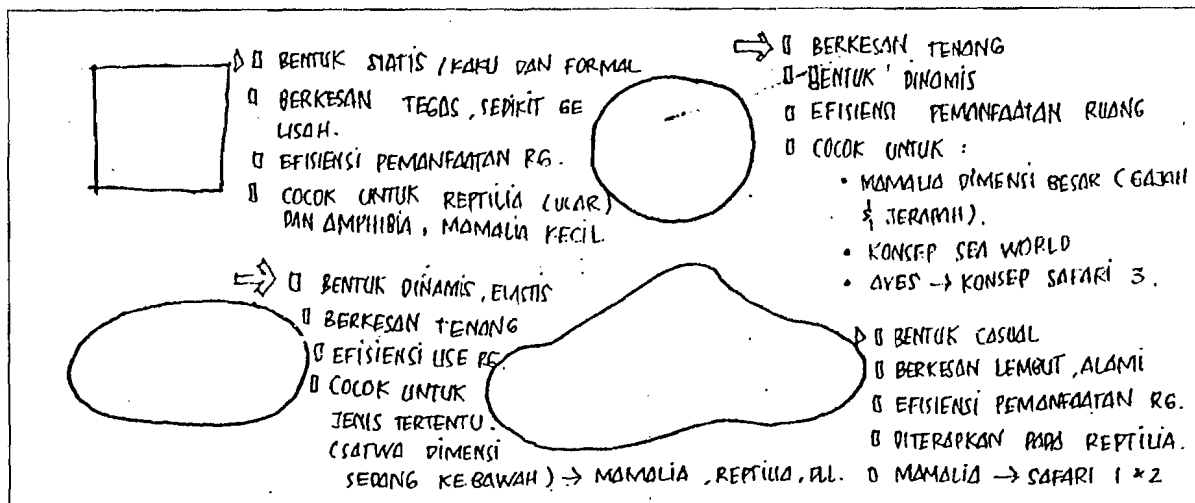 BENTUK STATIS / KAKU DAN FORMAL
BERKESAN TEGAS, SEDIKIT GE
LISAH.
EFISIENSI PEMANFAATAN RG.
COCOK UNTUK REPTILIA (ULAR)
DAN AMPHIBIA, MAMALIA KECIL.
BERKESAN TENANG
BENTUK DINAMIS
EFISIENSI PEMANFAATAN RUANG
COCOK UNTUK :
• MAMALIA DIMENSI BESAR (GAJAH
& JERAPAH).
• KONSEP SEA WORLD
• AVES → KONSEP SAFARI 3.
BENTUK DINAMIS, ELASTIS
BERKESAN TENANG
EFISIENSI USE RG.
COCOK UNTUK
JENIS TERTENTU.
(SATWA DIMENSI
SEDANG KEBAWAH) → MAMALIA, REPTILIA, DLL.
BENTUK CASUAL
BERKESAN LEMBUT, ALAMI
EFISIENSI PEMANFAATAN RG.
DITERAPKAN PADA REPTILIA.
MAMALIA → SAFARI 1 * 2